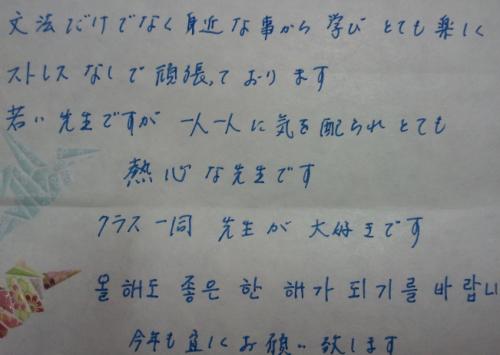 文法だけでなく身近な事から学び とても楽しく
ストレスなしで頑張っております
若い先生ですが 一人一人に気を配られとても
熱心な先生です
クラス一同 先生が大好きです
올 해도 좋은 한 해가 되기를 바랍니
今年も宜しくお願い致します